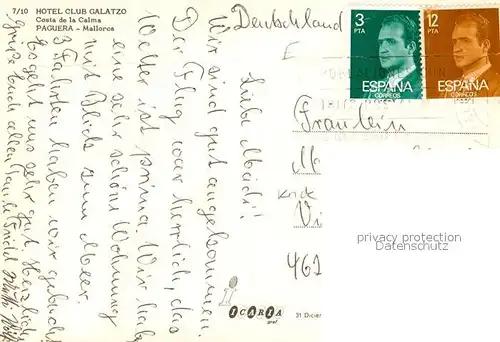 7/10 HOTEL CLUB GALATZO
Costa de la Calma
PAGUERA - Mallorca
Deutschland
3
PTA
ESPAÑA
CORREOS
12
PTA
ESPAÑA
CORREOS
Liebe Mädi!
Wir sind gut angekommen.
Der Flug war herrlich, das
Wetter ist prima. Wir haben
eine sehr schöne Wohnung
mit Blick zum Meer.
3 Fahrten haben wir gebucht
Es geht uns sehr gut. Herzliche
Grüße euch allen
Fräulein
461
privacy protection
www.oldthing.de
ICARIA
graf.
31 Dicier